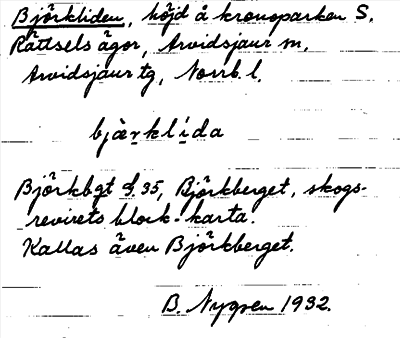 Björkliden, höjd å kronoparken S.
Rättsels ägor, Arvidsjaur m.
Arvidsjaur tg, Norrb. l.
bjærkli̇da
Björkbgt § 35, Björkberget, skogs-
revirets block-karta.
Kallas även Björkberget.
B. Nygren 1932.